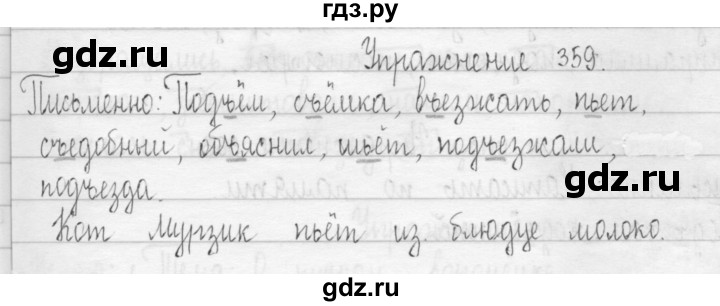 гдз.ру
gdz.ru
Упражнение 359.
Письменно: Подъём, съёмка, въезжать, пьет,
съедобный, объяснил, шьёт, подъезжали,
gdz.ru
подъезда.
Кот Мурзик пьёт из блюдце молоко.
gdz.ru